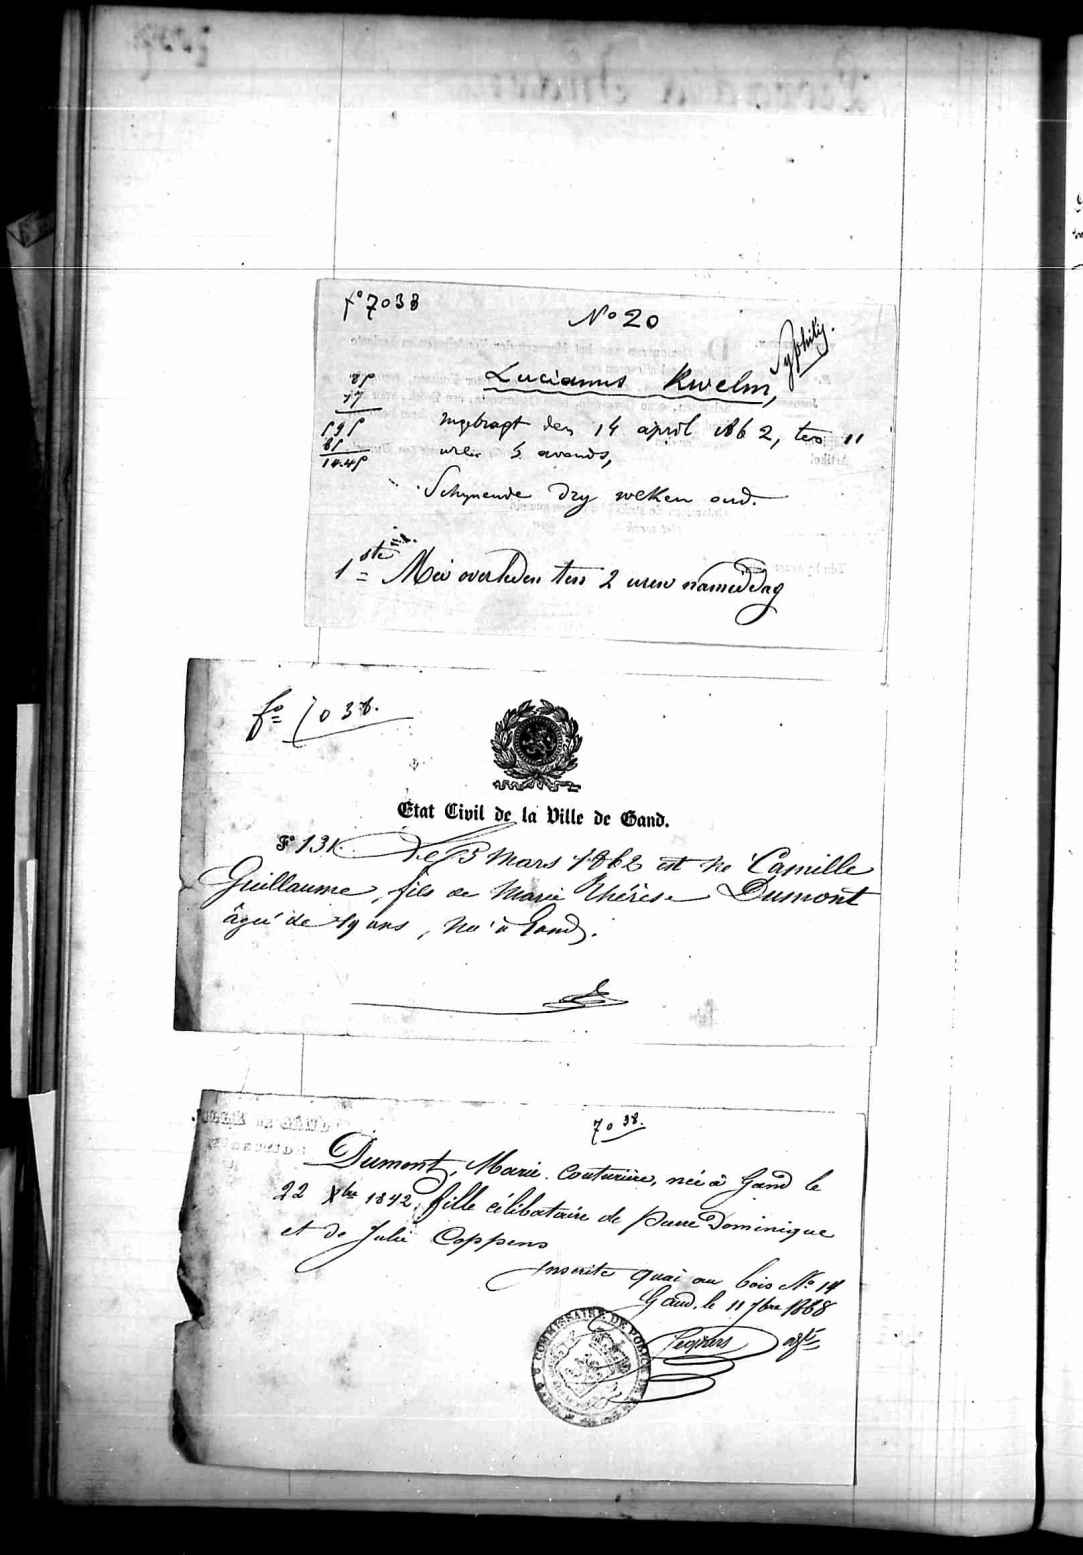 fo 7038
No 20
Syphilis.
Lucianus Kwelm,
ingebragt den 14 april 1862, ten 11
uren s avonds,
Schynende dry weken oud.
1ste Mei overleden ten 2 uren namiddag
fo 7038.
Etat Civil de la Ville de Gand.
Fo 131 Le 5 Mars 1862 est né Camille
Guillaume, fils de Marie Thérèse Dumont
âgée de 19 ans, née à Gand.
7038.
Dumont, Marie. Couturière, née à Gand le
22 Xbre 1842, fille célibataire de Pierre Dominique
et de Julie Coppens
Inscrite quai au bois No 14
Gand, le 11 7bre 1868
COMMISSAIRE DE POLICE